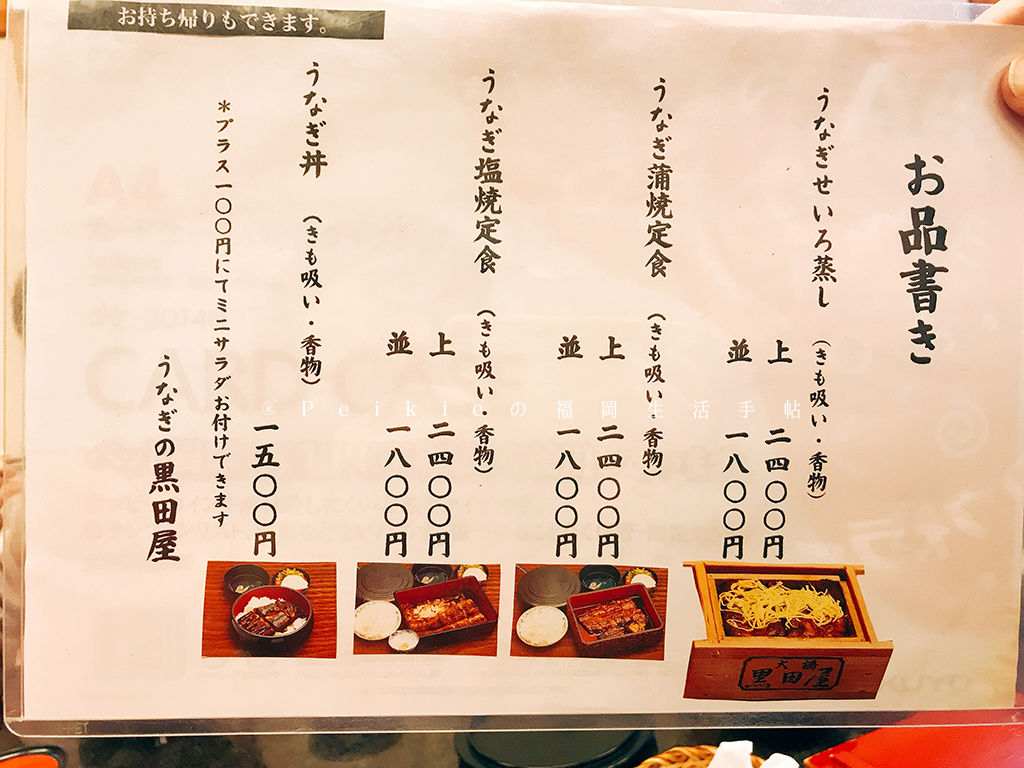 お品書き
うなぎせいろ蒸し (きも吸い・香物)
上 二四〇〇円
並 一八〇〇円
うなぎ蒲焼定食 (きも吸い・香物)
上 二四〇〇円
並 一八〇〇円
うなぎ塩焼定食 (きも吸い・香物)
上 二四〇〇円
並 一八〇〇円
うなぎ丼 (きも吸い・香物)
一五〇〇円
＊プラス一〇〇円にてミニサラダお付けできます
うなぎの黒田屋
お持ち帰りもできます。
大橋
黒田屋
®Peikieの福岡生活手帖
A4
CARD CASE